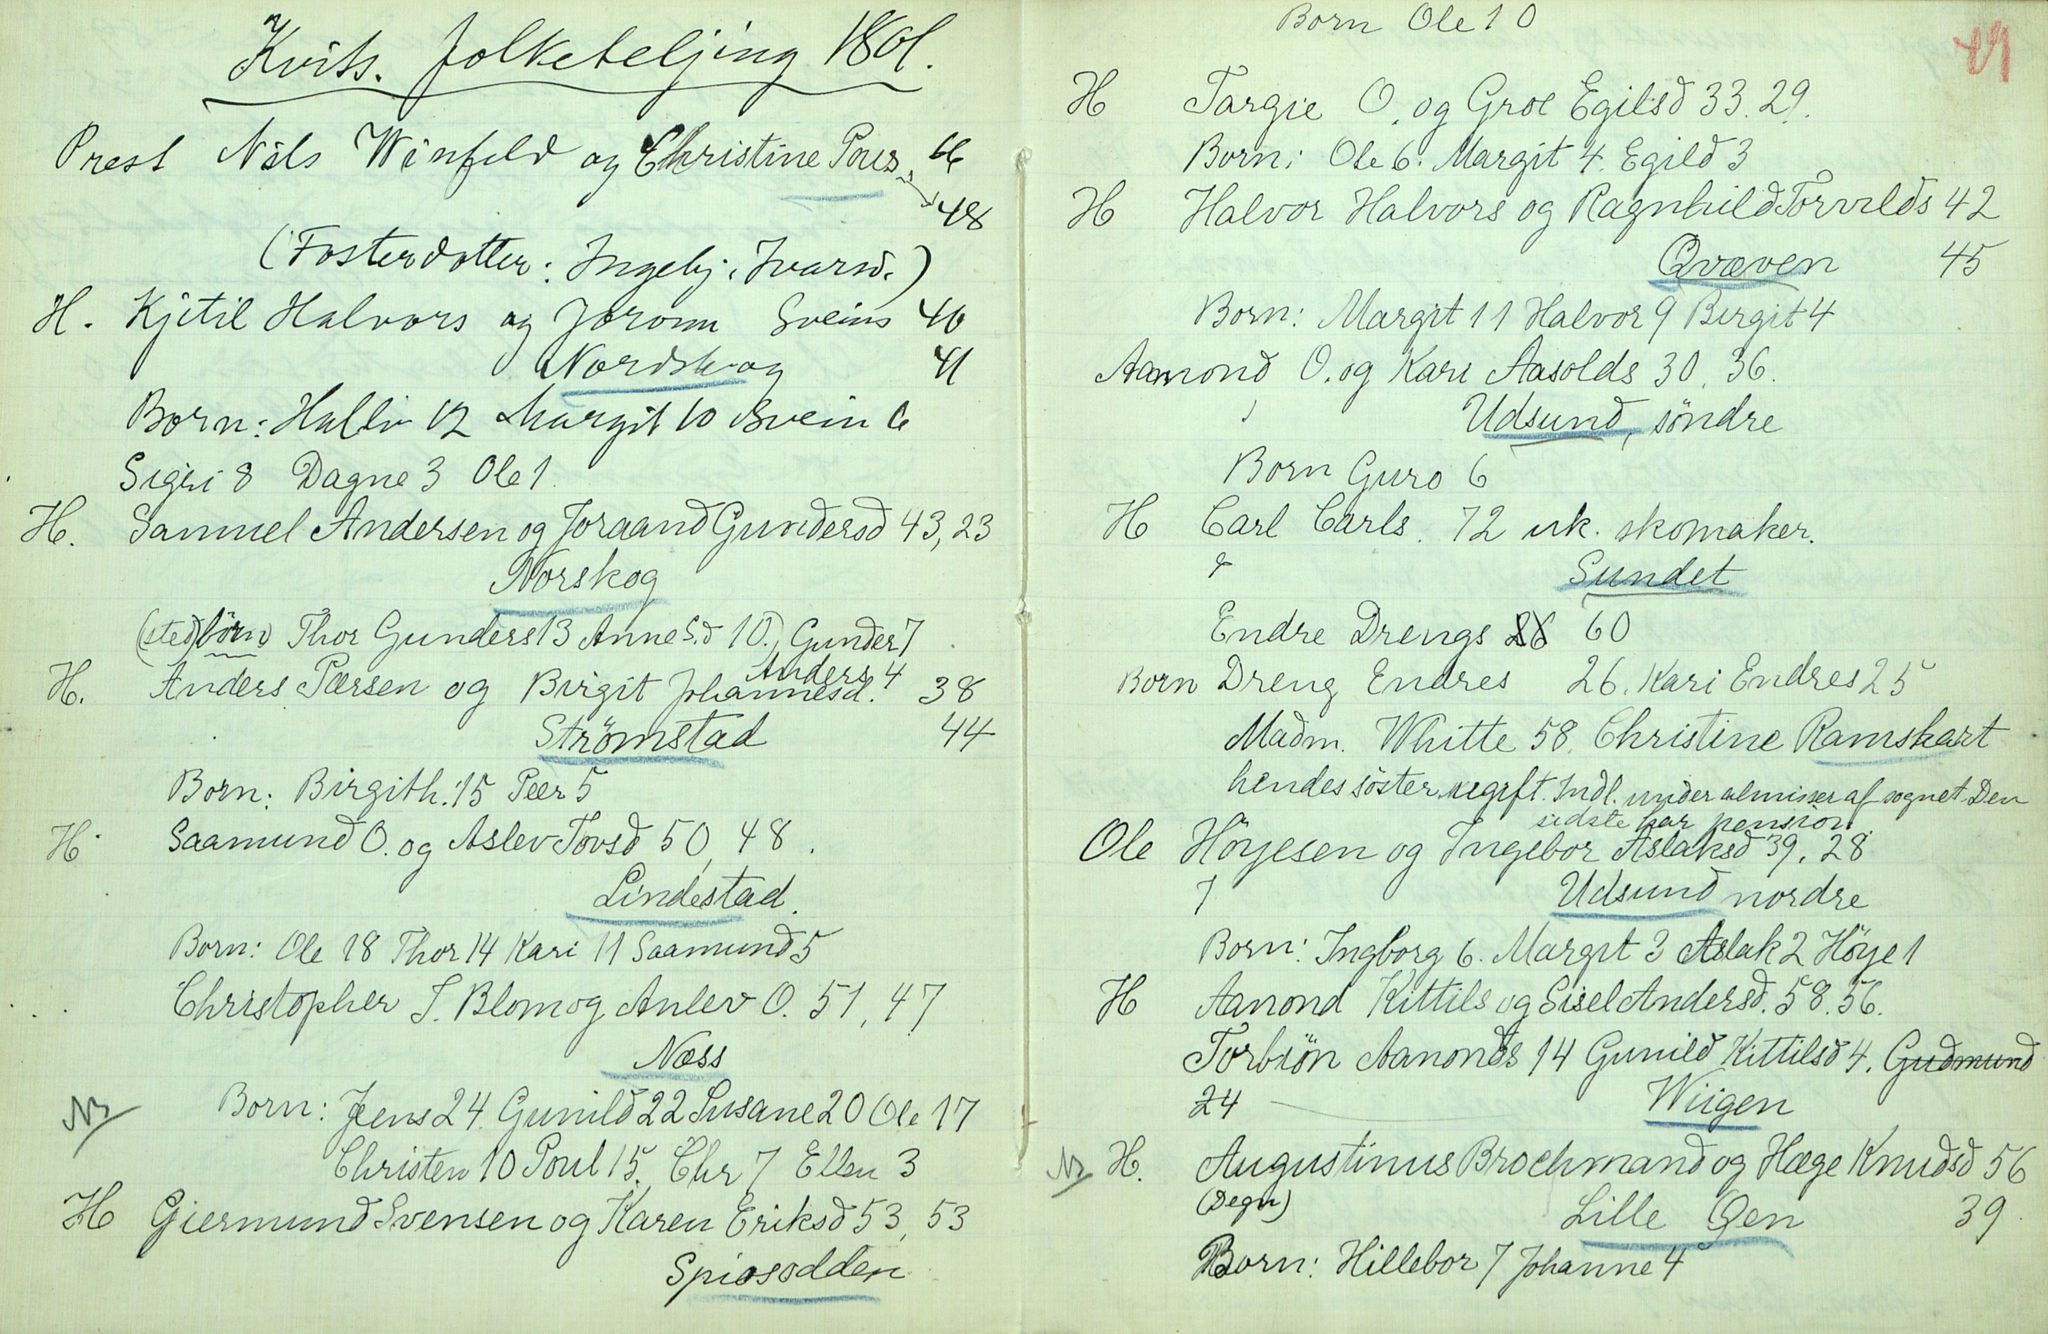 Kvits. folketeljing 1801.
Prest Nils Winfeld og Christine Pous. 66
48
(Fosterdotter: Ingebj. Ivarsd.)
H. Kjetil Halvors og Joronn Sveins 40
Nordskog 41
Born: Hallv 12 Margit 10 Svein 6
Sigri 8 Dagne 3 Ole 1
H. Samuel Andersen og Joraand Gundersd 43, 23
Norskog
(sted)börn Thor Gunders 13 Anne S.d 10. Gunder 7
Anders 4
H. Anders Pærsen og Birgit Johannesd. 38
Strømstad 44
Born: Birgith. 15 Peer 5
H. Saamund O. og Aslev Tovsd 50, 48.
Lindestad.
Born: Ole 18 Thor 14 Kari 11 Saamund 5
Christopher S. Blom og Anlev O. 51, 47
Næss
Born: Jens 24 Gunild 22 Susane 20 Ole 17
Christen 10 Poul 15. Chr 7 Ellen 3
H Giermund Svensen og Karen Eriksd 53, 53
Spiosodden
Born Ole 10
49
H Targie O. og Groe Egilsd 33. 29.
Born: Ole 6. Margit 4. Egild 3
H Halvor Halvors og Ragnhild Torvilds 42
Qvæven 45
Born: Margit 11 Halvor 9 Birgit 4
Aamond O. og Kari Aasolds 30, 36.
Udsund, söndre
Born Guro 6
H Carl Carls. 72 uk. skomaker.
Sundet
Endre Drengs 26 60
Born Dreng Endres 26. Kari Endres 25
Madm. Whitte 58. Christine Ramskart
hendes söster, uegift. Indl. under almisser af sognet. Den
sidste har pension.
Ole Höyesen og Ingebor Aslaksd 39. 28.
7 Udsund nordre
Born: Ingborg 6. Margit 3 Aslak 2 Höye 1
H Aanond Kittils og Sisel Andersd. 58. 56.
Torbiön Aanonds 14 Gunild Kittilsd 4. Gudmund
24 Wiigen
H. Augustinus Brochmand og Hæge Knudsd 56
(Degn) Lille Øen 39.
Born: Hillebor 7 Johanne 4